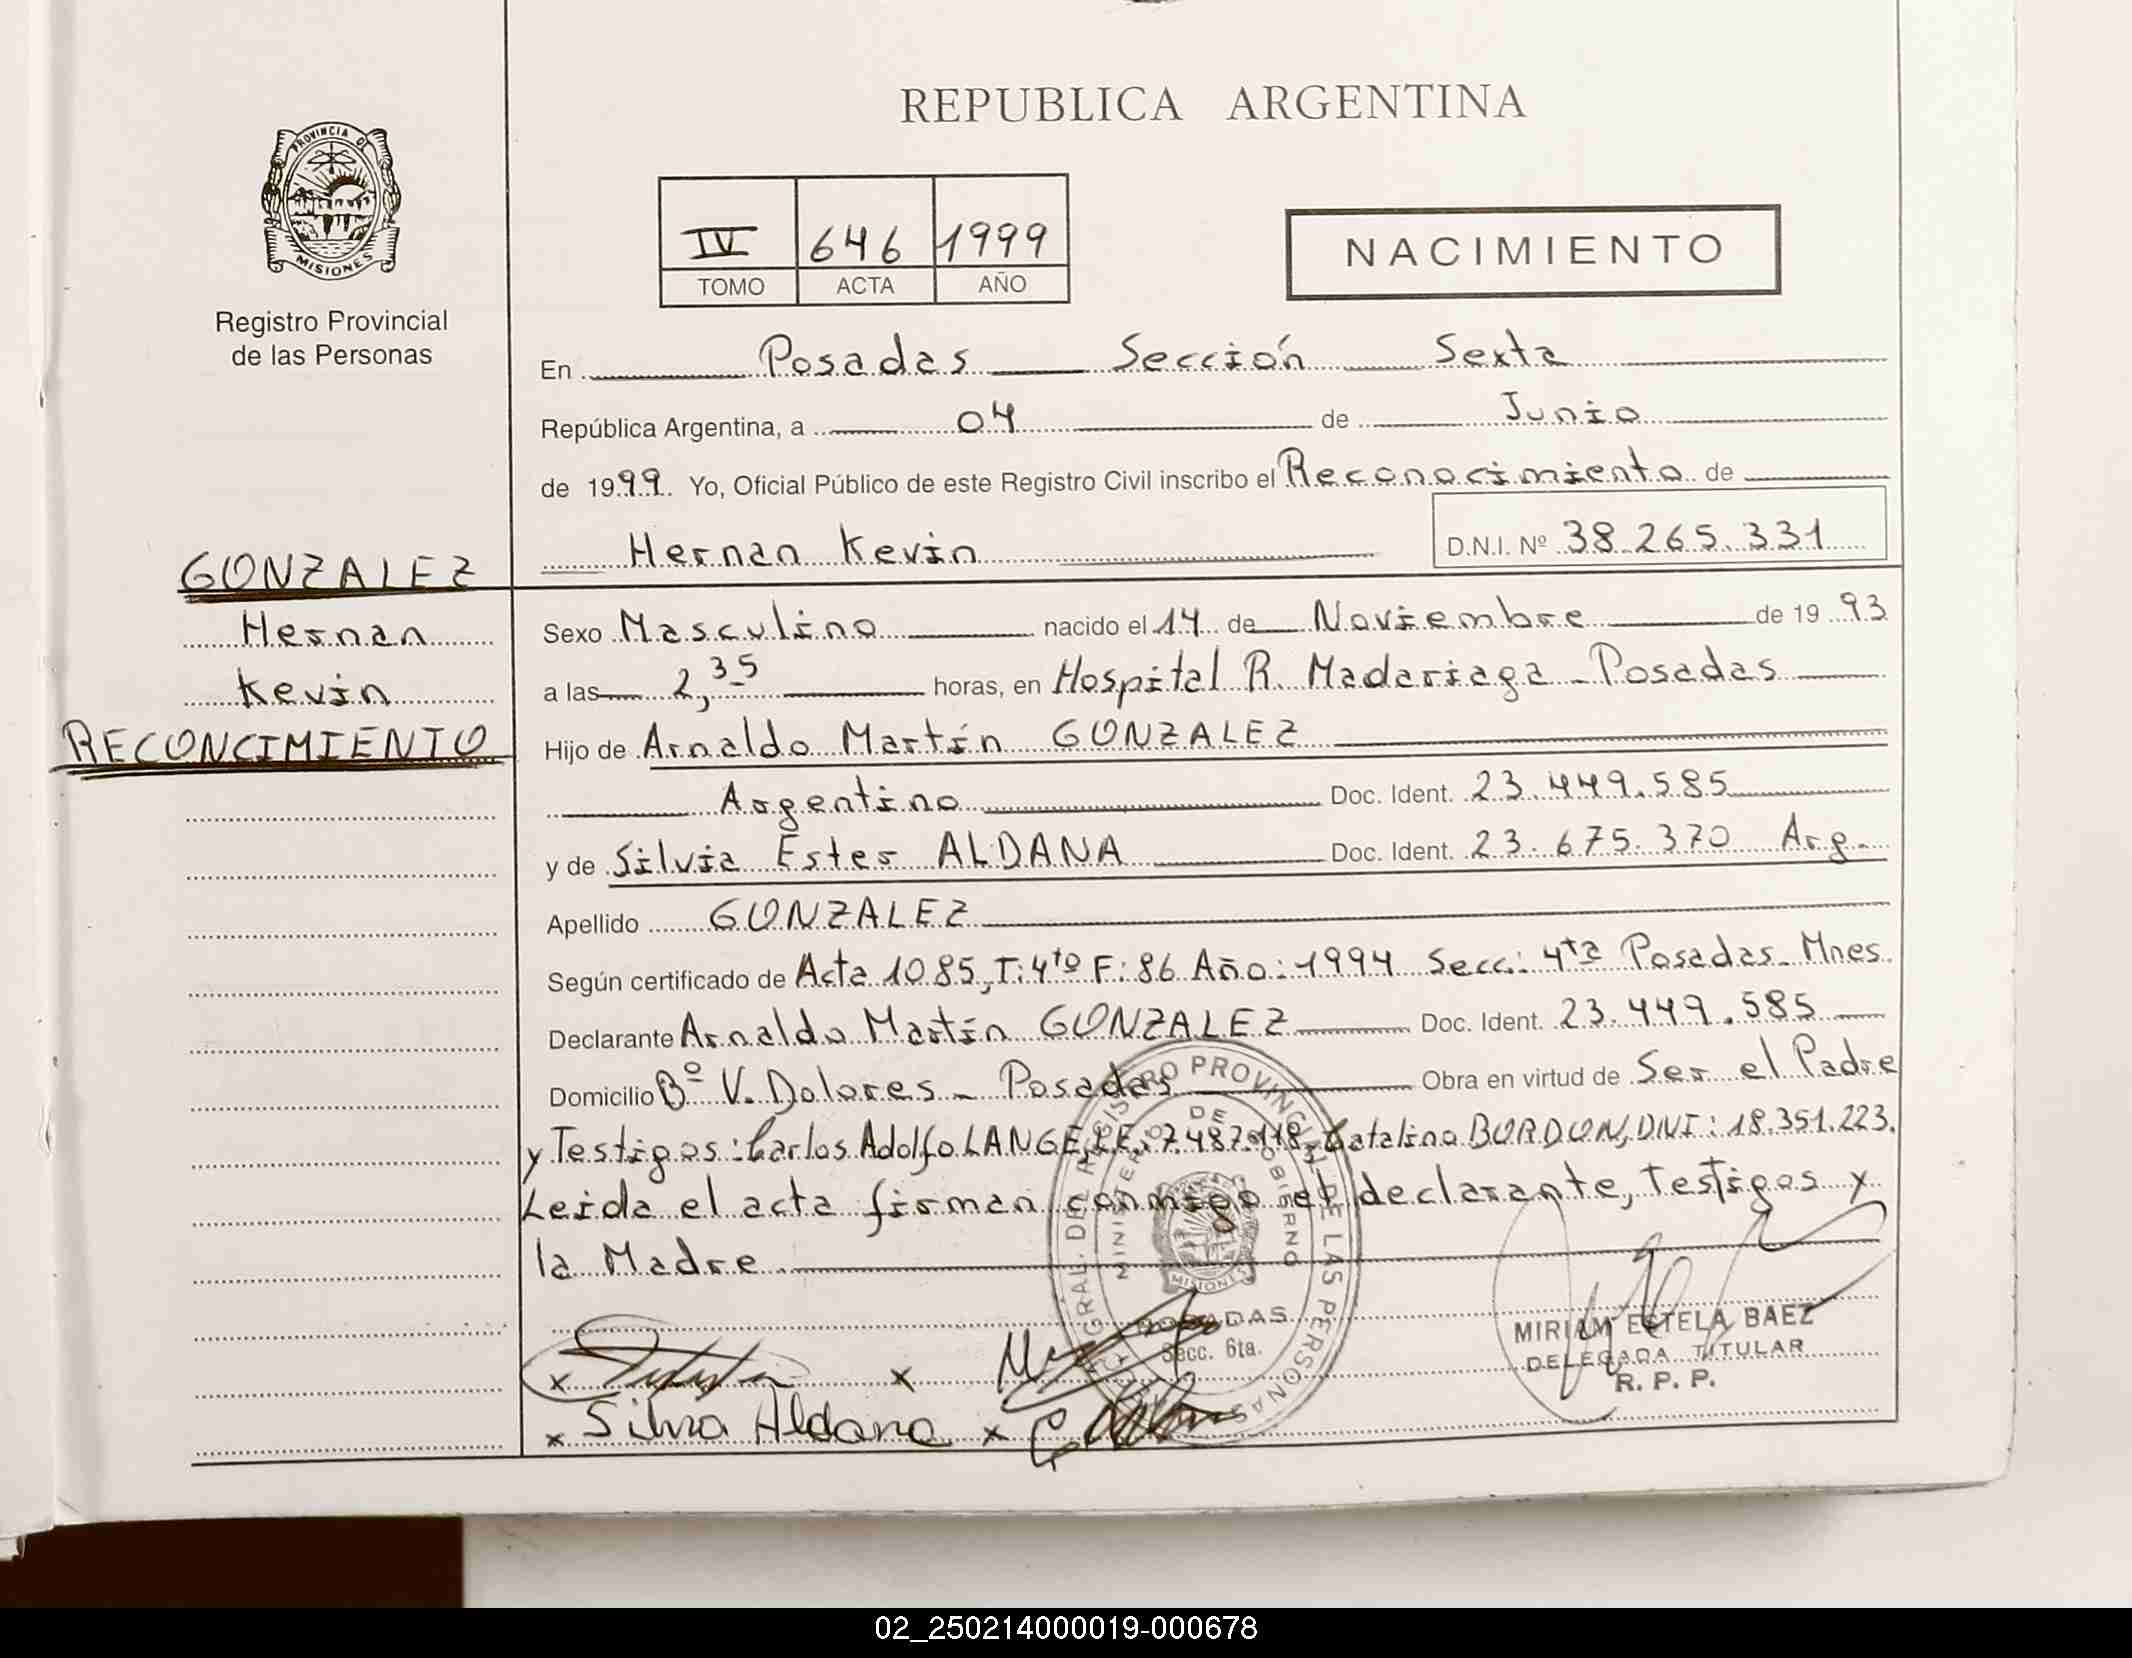 REPUBLICA ARGENTINA
PROVINCIA DE
MISIONES
Registro Provincial
de las Personas
IV 646 1999
TOMO ACTA AÑO
NACIMIENTO
En Posadas Sección Sexta
República Argentina, a 04 de Junio
de 1999. Yo, Oficial Público de este Registro Civil inscribo el Reconocimiento de
Hernan Kevin D.N.I. Nº 38.265.331
GONZALEZ
Hernan
Kevin
RECONCIMIENTO
Sexo Masculino nacido el 14 de Noviembre de 1993
a las 2,35 horas, en Hospital R. Madariaga - Posadas
Hijo de Arnaldo Martín GONZALEZ
Argentino Doc. Ident. 23.449.585
y de Silvia Ester ALDANA Doc. Ident. 23.675.370 Arg.
Apellido GONZALEZ
Según certificado de Acta 1085, T: 4to F: 86 Año: 1994 Secc: 4ta Posadas - Mnes.
Declarante Arnaldo Martín GONZALEZ Doc. Ident. 23.449.585
Domicilio Bº V. Dolores - Posadas Obra en virtud de Ser el Padre
y Testigos: Carlos Adolfo LANGE, LE: 7.487.118, Catalina BORDON, DNI: 18.351.223.
Leida el acta firman conmigo el declarante, testigos y
la Madre
GRAL. DEL REGISTRO PROVINCIAL DE LAS PERSONAS
MINISTERIO DE GOBIERNO
MISIONES
POSADAS
Secc. 6ta.
x x
x Silvia Aldana x
MIRIAM ESTELA BAEZ
DELEGADA TITULAR
R. P. P.
02_250214000019-000678